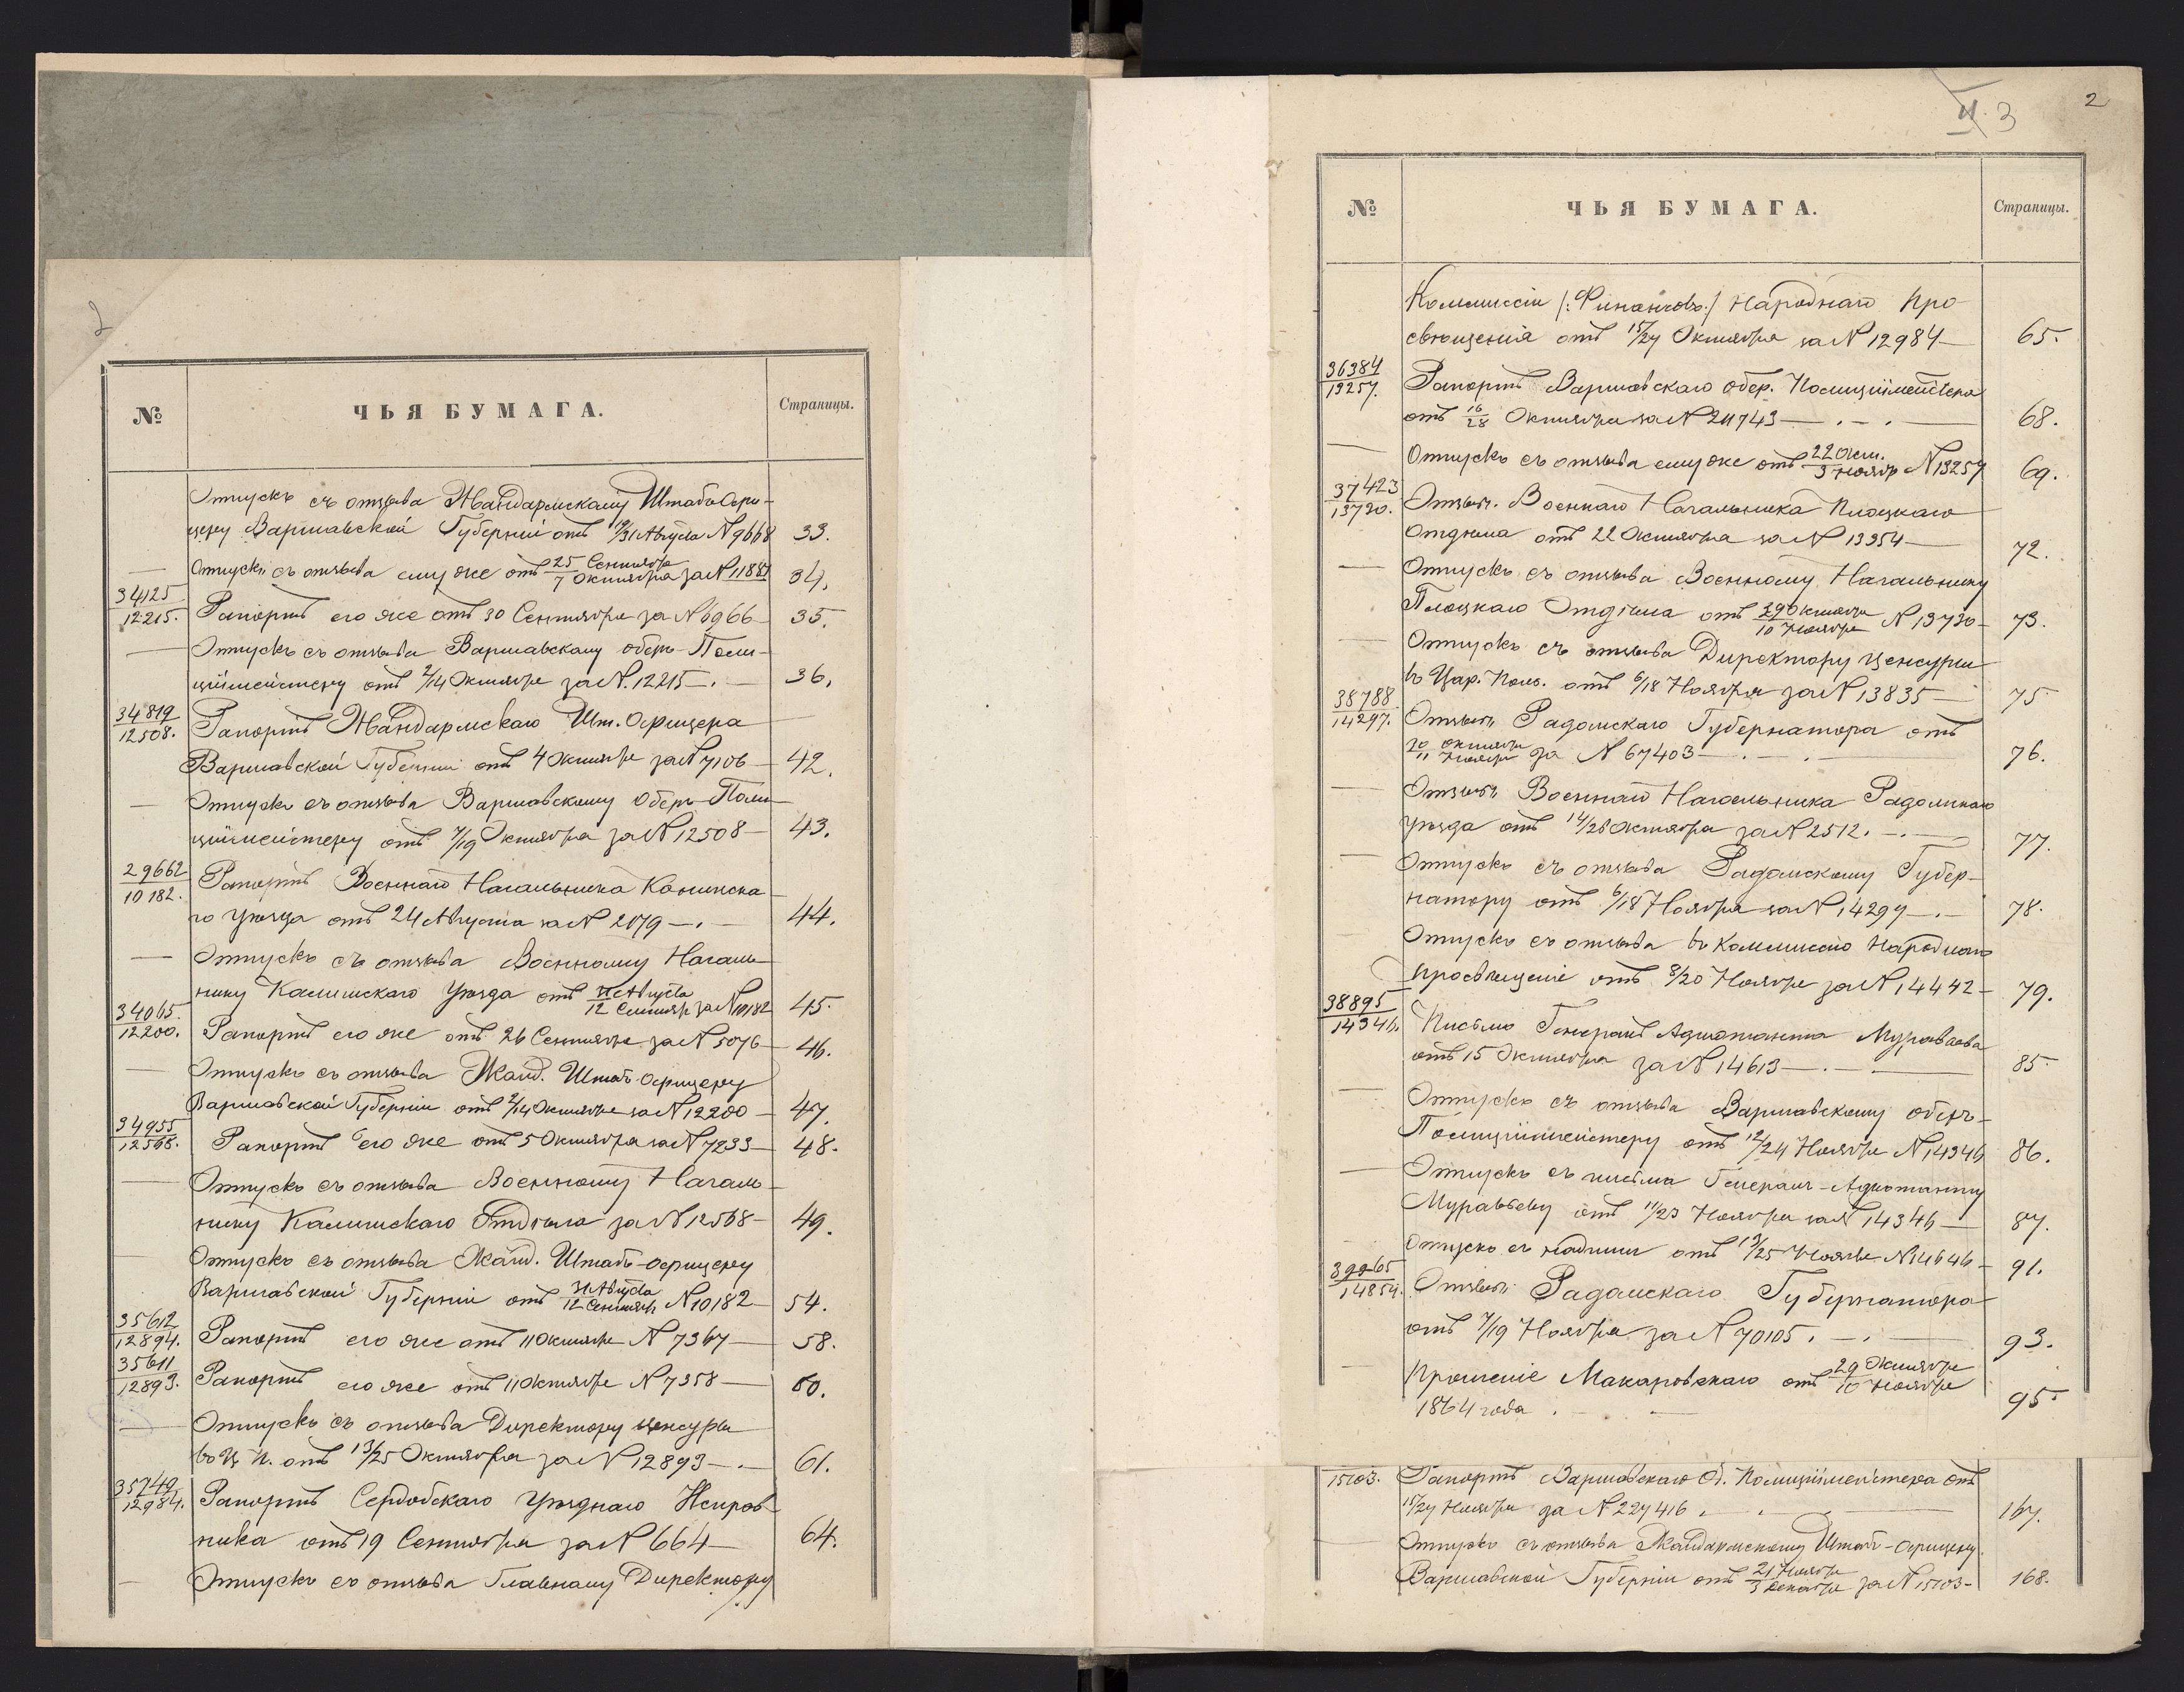 2
№ ЧЬЯ БУМАГА. Страницы.
Отпускъ съ отзыва Жандармскому Штабъ Офи-
церу Варшавской Губерніи отъ 19/31 Августа N 9668 33.
— Отпускъ съ отзыва ему же отъ 25 Сентября/7 Октября за N 11881 34.
34125/12215. Рапортъ его же отъ 30 Сентября за N 6966 35.
— Отпускъ съ отзыва Варшавскому оберъ-Поли-
ціймейстеру отъ 2/14 Октября за N. 12215 —. — 36.
34819/12508. Рапортъ Жандармскаго Шт. Офицера
Варшавской Губерніи отъ 4 Октября за N 7106 — 42.
— Отпускъ съ отзыва Варшавскому Оберъ-Поли-
ціймейстеру отъ 7/19 Октября за N 12508 — 43.
29662/10182. Рапортъ Военнаго Начальника Конинска
го Уѣзда отъ 24 Августа за N 2079 —. — 44.
— Отпускъ съ отзыва Военному Началь-
нику Калишскаго Уѣзда отъ 31 Августа/12 Сентября за N 10182 45.
34065/12200. Рапортъ его же отъ 26 Сентября за N 5076 — 46.
— Отпускъ съ отзыва Жанд. Штабъ-офицеру
Варшавской Губерніи отъ 2/14 Октября за N 12200 — 47.
34955/12568. Рапортъ его же отъ 5 Октября за N 7233 — 48.
— Отпускъ съ отзыва Военному Началь-
нику Калишскаго Отдѣла за N 12568 — 49.
— Отпускъ съ отзыва Жанд. Штабъ-офицеру
Варшавской Губерніи отъ 31 Августа/12 Сентября N 10182 — 54.
35612/12894. Рапортъ его же отъ 11 Октября N 7367 — 58.
35611/12893. Рапортъ его же отъ 11 Октября N 7358 — 60.
— Отпускъ съ отзыва Директору Цензуры
въ Ц. П. отъ 13/25 Октября за N 12893 —. — 61.
35749/12984. Рапортъ Сердобскаго Уѣзднаго Исправ-
ника отъ 19 Сентября за N 664 — 64.
— Отпускъ съ отзыва Главному Директору
3 2
№ ЧЬЯ БУМАГА. Страницы.
Коммиссіи /: Финансовъ :/ Народнаго Про-
свѣщенія отъ 15/27 Октября за N 12984 — 65.
36384/13257. Рапортъ Варшавскаго обер. Полиціймейстера
отъ 16/28 Октября за N 211743 — 68.
— Отпускъ съ отзыва ему же отъ 22 Окт./3 Ноябр N 13257 69.
37423/13730. Отзывъ. Военнаго Начальника Плоцкаго
Отдѣла отъ 22 Октября за N 13354 — 72.
— Отпускъ съ отзыва Военному Начальнику
Плоцкаго Отдѣла отъ 29 Октября/10 Ноября N 13730 — 73.
— Отпускъ съ отзыва Директору Ценсуры
въ Цар. Поль. отъ 6/18 Ноября за N 13835 — 75
38788/14297. Отзывъ Радомскаго Губернатора отъ
30 Октября/11 Ноября за N 67403 — 76.
— Отзывъ Военнаго Начальника Радомскаго
уѣзда отъ 14/26 Октября за N 2512. —. — 77.
— Отпускъ съ отзыва Радомскому Губер-
натору отъ 6/18 Ноября за N 14297 —. — 78.
— Отпускъ съ отзыва въ Коммиссію Народнаго
Просвѣщенія отъ 8/20 Ноября за N 14442 — 79.
38895/14346. Письмо Генералъ Адъютанта Муравьева
отъ 15 Октября за N 14613 —. — 85.
— Отпускъ съ отзыва Варшавскому оберъ-
Полиціймейстеру отъ 12/24 Ноября N 14346 86.
— Отпускъ съ письма Генералъ-Адъютанту
Муравьеву отъ 11/23 Ноября за N 14346 — 87.
Отпускъ съ надписи отъ 13/25 Ноября N 14646 — 91.
39965/14854. Отзывъ Радомскаго Губернатора
отъ 7/19 Ноября за N 70105. —. — 93.
— Прошеніе Макаровскаго отъ 29 Октября/10 Ноября
1864 года. 95
15103. Рапортъ Варшавскаго Об. Полиціймейстера отъ
15/27 Ноября за N 227416. 167.
— Отпускъ съ отзыва Жандармскому Штабъ-офицеру
Варшавской Губерніи отъ 21 Ноября/3 Декабря за N 15103 — 168.